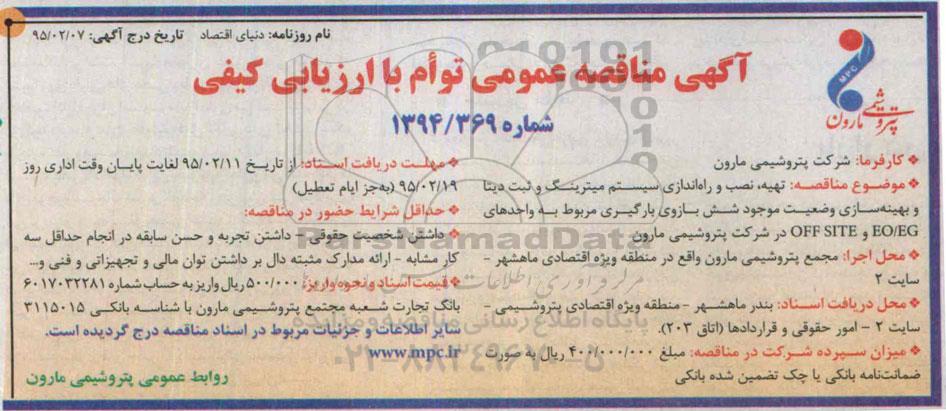 نام روزنامه: دنیای اقتصاد تاریخ درج آگهی: ۹۵/۰۲/۰۷
آگهی مناقصه عمومی توأم با ارزیابی کیفی
شماره ۱۳۹۴/۳۶۹
MPC
پتروشیمی مارون
کارفرما: شرکت پتروشیمی مارون
موضوع مناقصه: تهیه، نصب و راه‌اندازی سیستم میترینگ و ثبت دیتا
و بهینه‌سازی وضعیت موجود شش بازوی بارگیری مربوط به واحدهای
EO/EG و OFF SITE در شرکت پتروشیمی مارون
محل اجرا: مجمع پتروشیمی مارون واقع در منطقه ویژه اقتصادی ماهشهر -
سایت ۲
محل دریافت اسناد: بندر ماهشهر - منطقه ویژه اقتصادی پتروشیمی -
سایت ۲ - امور حقوقی و قراردادها (اتاق ۲۰۳).
میزان سپرده شرکت در مناقصه: مبلغ ۴۰۰/۰۰۰/۰۰۰ ریال به صورت
ضمانت‌نامه بانکی یا چک تضمین شده بانکی
مهلت دریافت اسناد: از تاریخ ۹۵/۰۲/۱۱ لغایت پایان وقت اداری روز
۹۵/۰۲/۱۹ (به‌جز ایام تعطیل)
حداقل شرایط حضور در مناقصه:
داشتن شخصیت حقوقی - داشتن تجربه و حسن سابقه در انجام حداقل سه
کار مشابه - ارائه مدارک مثبته دال بر داشتن توان مالی و تجهیزاتی و فنی و...
قیمت اسناد و نحوه واریز: ۵۰۰/۰۰۰ ریال واریز به حساب شماره ۶۰۱۷۰۳۲۲۸۱
بانک تجارت شعبه مجتمع پتروشیمی مارون با شناسه بانکی ۳۱۱۵۰۱۵
سایر اطلاعات و جزئیات مربوط در اسناد مناقصه درج گردیده است.
www.mpc.ir
روابط عمومی پتروشیمی مارون
ParsNamadData
مرکز فرآوری اطلاعات
پایگاه اطلاع رسانی مناقصه و مزایده
۰۲۱-۸۸۳۴۹۶۷۰-۵